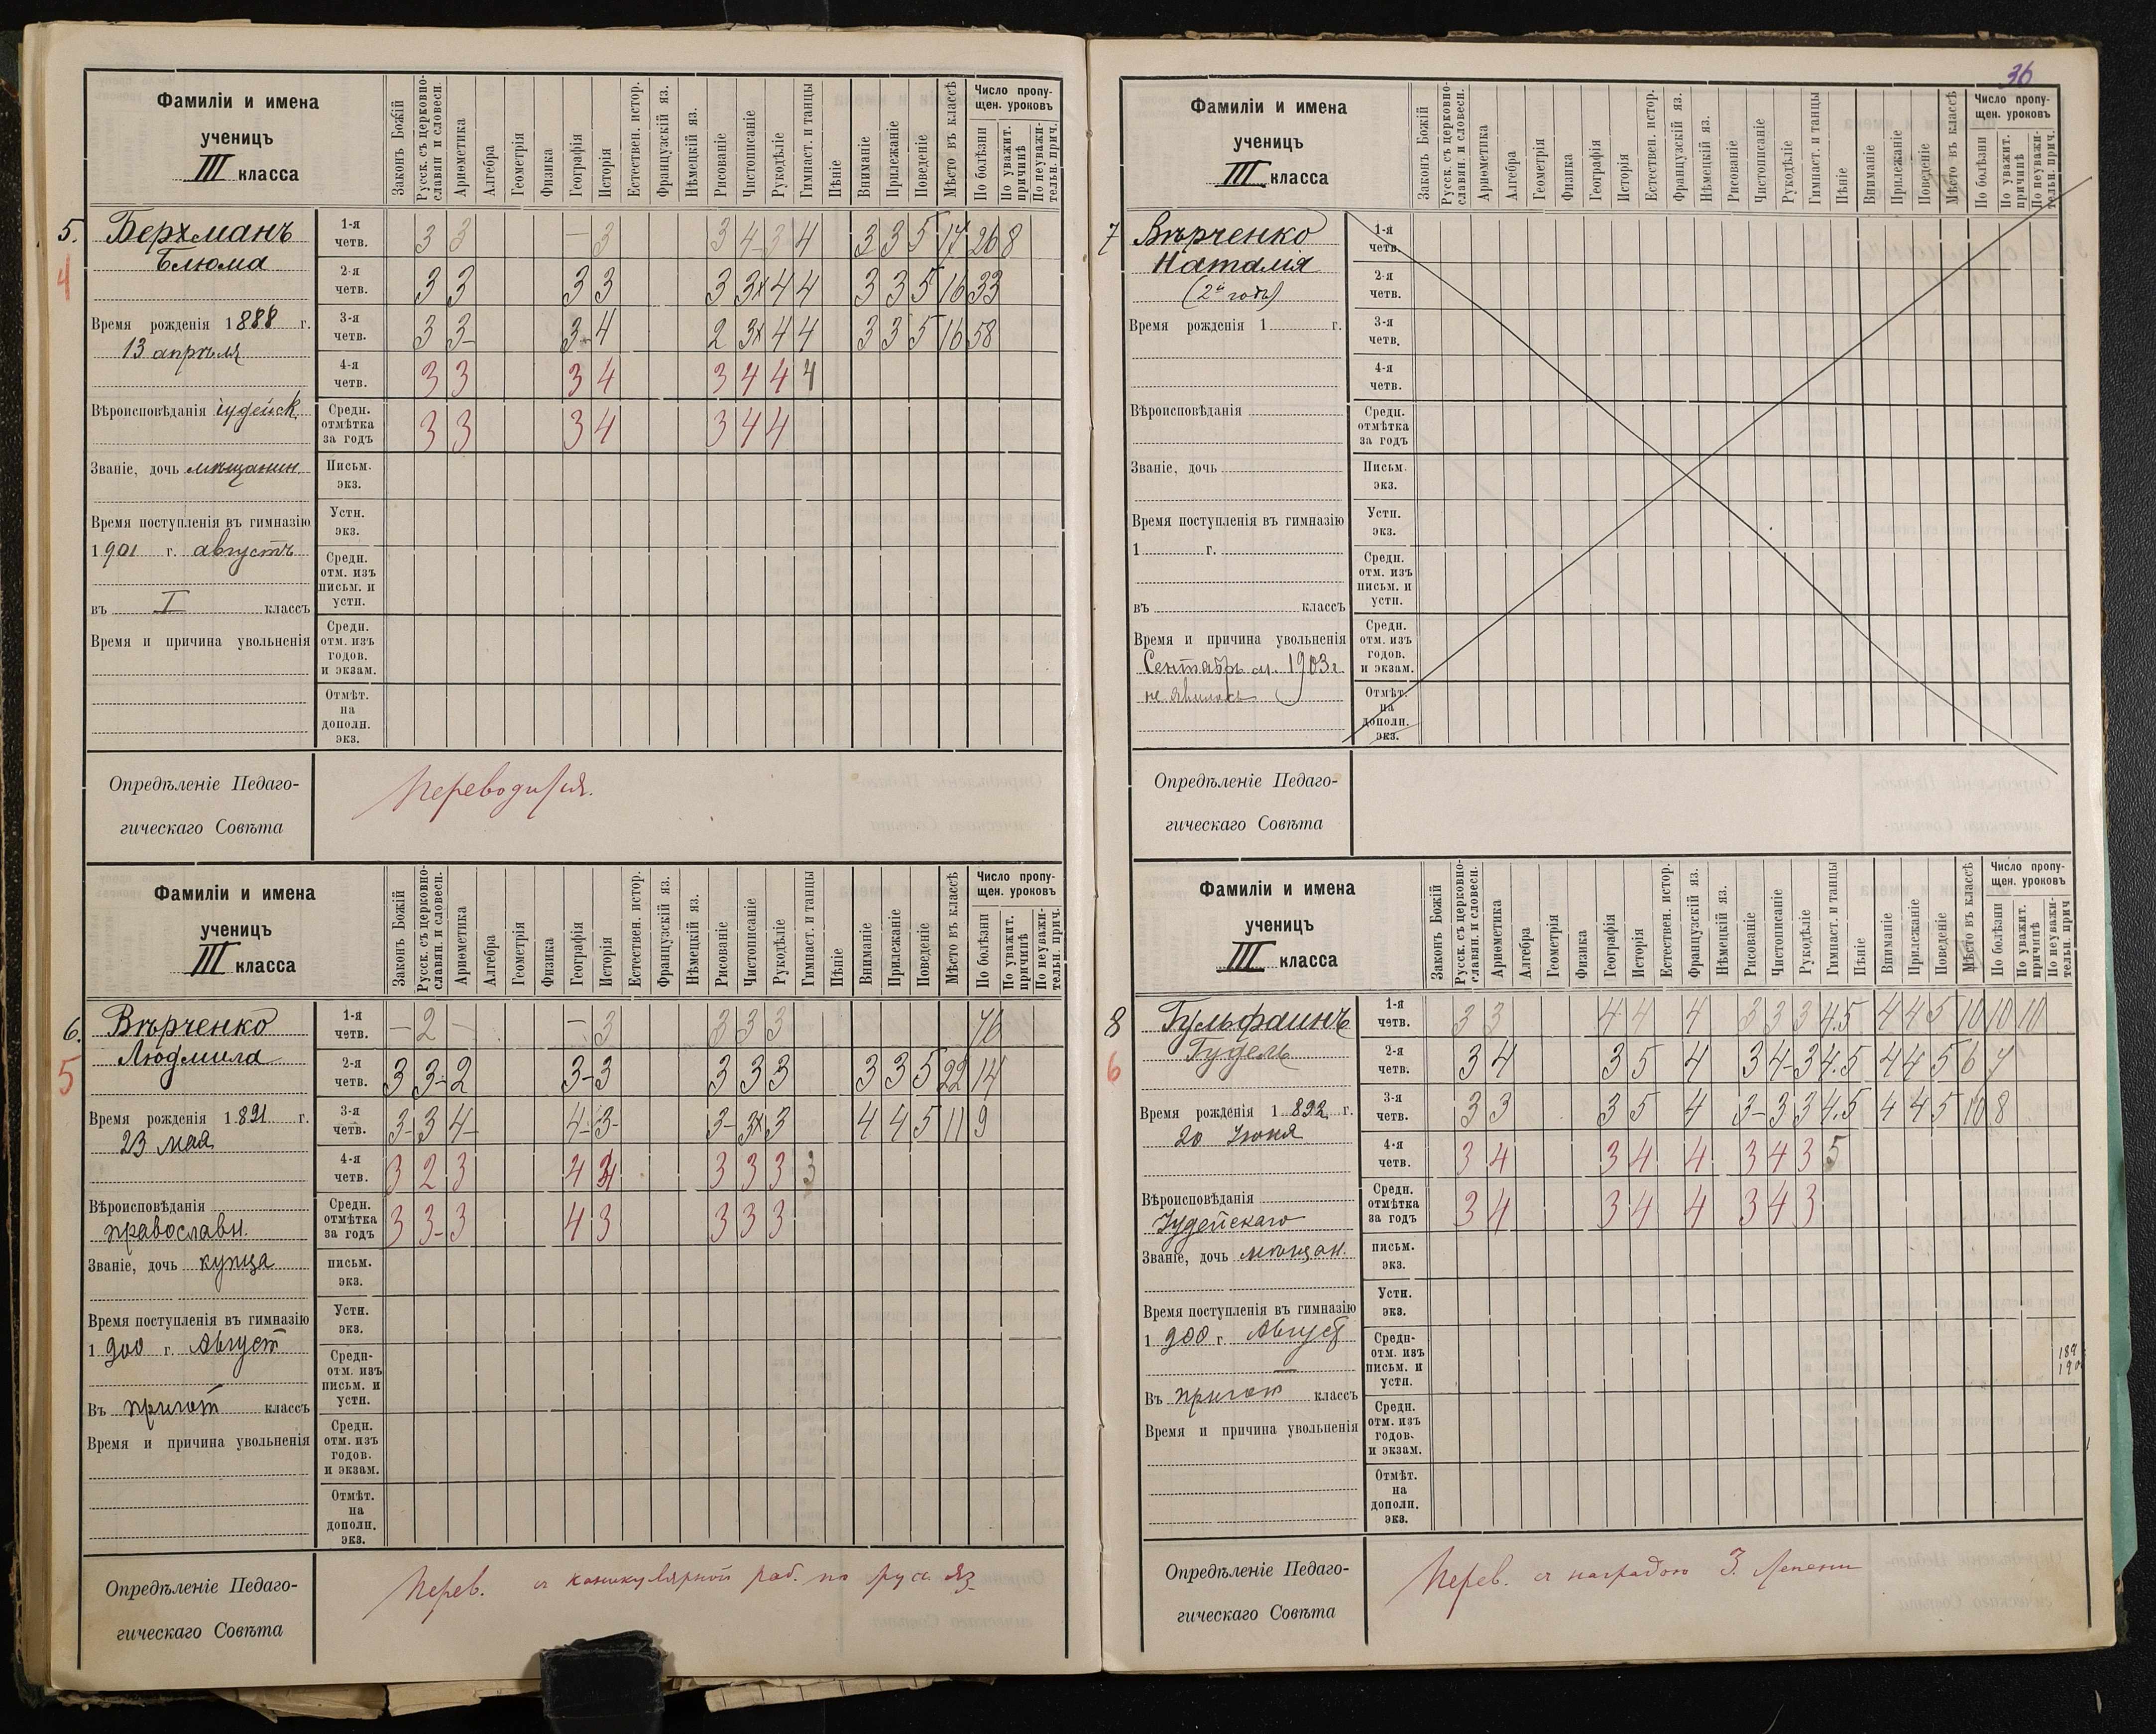 36
Фамиліи и имена
ученицъ
III класса
Законъ Божій
Русск. съ церковно-
славян. и словесн.
Ариѳметика
Алгебра
Геометрія
Физика
Географія
Исторія
Естествен. истор.
Французскій яз.
Нѣмецкій яз.
Рисованіе
Чистописаніе
Рукодѣліе
Гимнаст. и танцы
Пѣніе
Вниманіе
Прилежаніе
Поведеніе
Мѣсто въ классѣ
Число пропу-
щен. уроковъ
По болѣзни
По уважит.
причинѣ
По неуважи-
тельн. прич.
5.
4
Берхманъ
Блюма
Время рожденія 1888 г.
13 апрѣля
Вѣроисповѣданія іудейск.
Званіе, дочь мѣщанин.
Время поступленія въ гимназію
1901 г. августъ
въ I классъ
Время и причина увольненія
1-я четв. 3 3 — 3 3 4 3 4 3 3 5 17 26 8
2-я четв. 3 3 3 3 3 3х 4 4 3 3 5 16 33
3-я четв. 3 3- 3- 4 2 3х 4 4 3 3 5 16 58
4-я четв. 3 3 3 4 3 4 4 4
Средн. отмѣтка за годъ 3 3 3 4 3 4 4
Письм. экз.
Устн. экз.
Средн. отм. изъ письм. и устн.
Средн. отм. изъ годов. и экзам.
Отмѣт. на дополн. экз.
Опредѣленіе Педаго-
гическаго Совѣта
Переводится.
Фамиліи и имена
ученицъ
III класса
Законъ Божій
Русск. съ церковно-
славян. и словесн.
Ариѳметика
Алгебра
Геометрія
Физика
Географія
Исторія
Естествен. истор.
Французскій яз.
Нѣмецкій яз.
Рисованіе
Чистописаніе
Рукодѣліе
Гимнаст. и танцы
Пѣніе
Вниманіе
Прилежаніе
Поведеніе
Мѣсто въ классѣ
Число пропу-
щен. уроковъ
По болѣзни
По уважит.
причинѣ
По неуважи-
тельн. прич.
6.
5
Вѣрченко
Людмила
Время рожденія 1891 г.
23 мая
Вѣроисповѣданія
православн.
Званіе, дочь купца
Время поступленія въ гимназію
1900 г. Август
Въ пригот классъ
Время и причина увольненія
1-я четв. — 2 — — 3 3 3 3 76
2-я четв. 3 3- 2 3- 3 3 3 3 3 3 5 22 14
3-я четв. 3- 3 4- 4- 3- 3- 3х 3 4 4 5 11 9
4-я четв. 3 2 3 4 3 3 3 3 3
Средн. отмѣтка за годъ 3 3- 3 4 3 3 3 3
письм. экз.
Устн. экз.
Средн- отм. изъ письм. и устн.
Средн. отм. изъ годов. и экзам.
Отмѣт. на дополн. экз.
Опредѣленіе Педаго-
гическаго Совѣта
Перев. съ каникулярной раб. по русс. яз.
Фамиліи и имена
ученицъ
III класса
Законъ Божій
Русск. съ церковно-
славян. и словесн.
Ариѳметика
Алгебра
Геометрія
Физика
Географія
Исторія
Естествен. истор.
Французскій яз.
Нѣмецкій яз.
Рисованіе
Чистописаніе
Рукодѣліе
Гимнаст. и танцы
Пѣніе
Вниманіе
Прилежаніе
Поведеніе
Мѣсто въ классѣ
Число пропу-
щен. уроковъ
По болѣзни
По уважит.
причинѣ
По неуважи-
тельн. прич.
7
Вѣрченко
Наталія
(2й годъ)
Время рожденія 1 г.
Вѣроисповѣданія
Званіе, дочь
Время поступленія въ гимназію
1 г.
въ классъ
Время и причина увольненія
Сентябрь м. 1903 г.
не явилась
1-я четв.
2-я четв.
3-я четв.
4-я четв.
Средн. отмѣтка за годъ
Письм. экз.
Устн. экз.
Средн. отм. изъ письм. и устн.
Средн. отм. изъ годов. и экзам.
Отмѣт. на дополн. экз.
Опредѣленіе Педаго-
гическаго Совѣта
Фамиліи и имена
ученицъ
III класса
Законъ Божій
Русск. съ церковно-
славян. и словесн.
Ариѳметика
Алгебра
Геометрія
Физика
Географія
Исторія
Естествен. истор.
Французскій яз.
Нѣмецкій яз.
Рисованіе
Чистописаніе
Рукодѣліе
Гимнаст. и танцы
Пѣніе
Вниманіе
Прилежаніе
Поведеніе
Мѣсто въ классѣ
Число пропу-
щен. уроковъ
По болѣзни
По уважит.
причинѣ
По неуважи-
тельн. прич
8
6
Гульфаинъ
Гудель
Время рожденія 1892 г.
20 Іюня
Вѣроисповѣданія
Іудейскаго
Званіе, дочь мѣщан.
Время поступленія въ гимназію
1900 г. Август
Въ пригот классъ
Время и причина увольненія
1-я четв. 3 3 4 4 4 3 3 3 4.5 4 4 5 10 10 10
2-я четв. 3 4 3 5 4 3 4- 3 4.5 4 4 5 6 7
3-я четв. 3 3 3 5 4 3- 3 3 4.5 4 4 5 10 8
4-я четв. 3 4 3 4 4 3 4 3 5
Средн. отмѣтка за годъ 3 4 3 4 4 3 4 3
письм. экз.
Устн. экз.
Средн- отм. изъ письм. и устн.
Средн. отм. изъ годов- и экзам.
Отмѣт. на дополн. экз.
Опредѣленіе Педаго-
гическаго Совѣта
Перев. съ наградою 3. степени